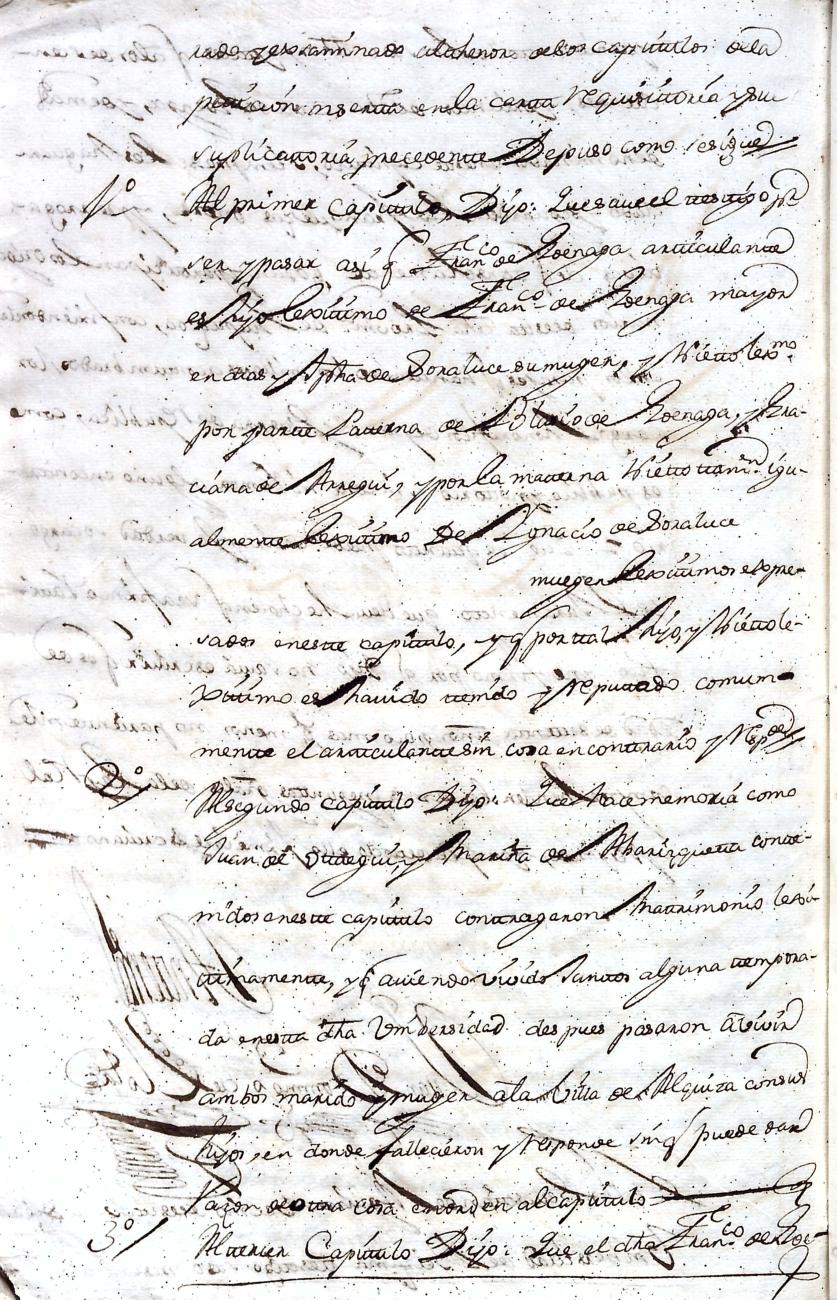 rado y examinado al thenor de los capitulos de la
peticion inserta en la carta requisitoria y su
suplicatoria precedente Depuso como se sigue
1º Al primer capitulo, Dijo: Que save el testigo
ser y pasar asi q Franco de Zoenaga articulante
es Hijo lexitimo de Franco de Zoenaga mayor
en dias y de Soraluce su muger, y Nieto lexmo
por parte Paterna de de Zoenaga, y Gra-
ciana de Arregui, y por la materna Nieto tamn igu-
almente lexitimo De Ygnacio de Soraluce
muger lexitimos expre-
sados en este capitulo, y q por tal Hijo, y Nieto le-
xitimo es havido tenido y reputado comun-
mente el articulante sin cosa en contrario y respde
2º Al segundo capitulo Dijo: Que hace memoria como
Juan de Otegui, y Maria de Abarizqueta conte-
nidos en este capitulo contrageron Matrimonio lexi-
timamente, y q aviendo vivido Juntos alguna tempora-
da en esta dha Universidad despues pasaron a vivir
ambos marido y muger a la Villa de Alquiza con sus
hijos, en donde fallecieron y responde sin q puede dar
razon de otra cosa en orden al capitulo
3º Al tercer Capitulo Dijo: Que el dho Franco de Zoe-